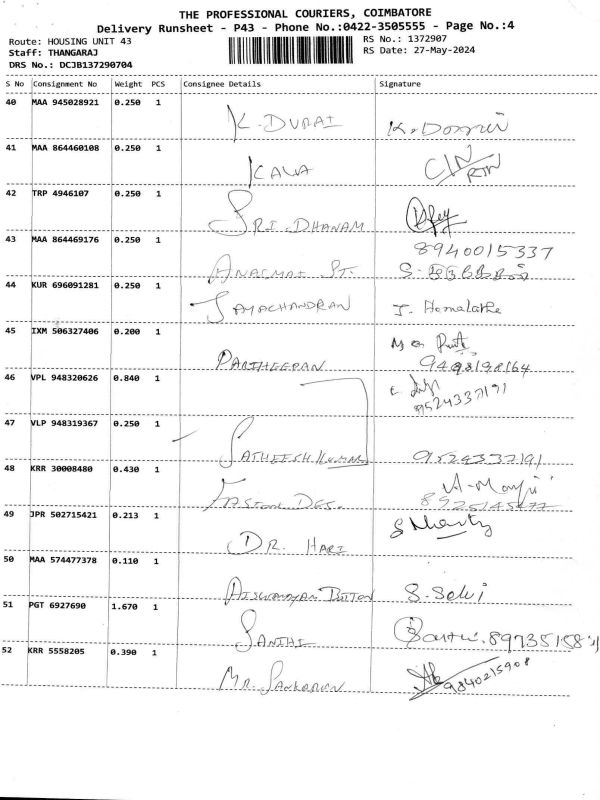 THE PROFESSIONAL COURIERS, COIMBATORE
Delivery Runsheet - P43 - Phone No.:0422-3505555 - Page No.:4
Route: HOUSING UNIT 43
RS No.: 1372907
Staff: THANGARAJ
RS Date: 27-May-2024
DRS No.: DCJB137290704
S No Consignment No Weight PCS Consignee Details Signature
40 MAA 945028921 0.250 1 K. DURAI
41 MAA 864460108 0.250 1 KALA
42 TRP 4946107 0.250 1 SRI DHANAM
8940015337
43 MAA 864469176 0.250 1
44 KUR 696091281 0.250 1 JAYACHANDRAN J. Hemalatha
45 IXM 506327406 0.200 1 PARTHEEPAN
46 VPL 948320626 0.840 1 9524337191
47 VLP 948319367 0.250 1 SATHEESH KUMAR 9524337191
48 KRR 30008480 0.430 1
49 JPR 502715421 0.213 1 DR. HARI
50 MAA 574477378 0.110 1 S. Selvi
51 PGT 6927690 1.670 1 SANTHI
52 KRR 5558205 0.390 1 9840215908